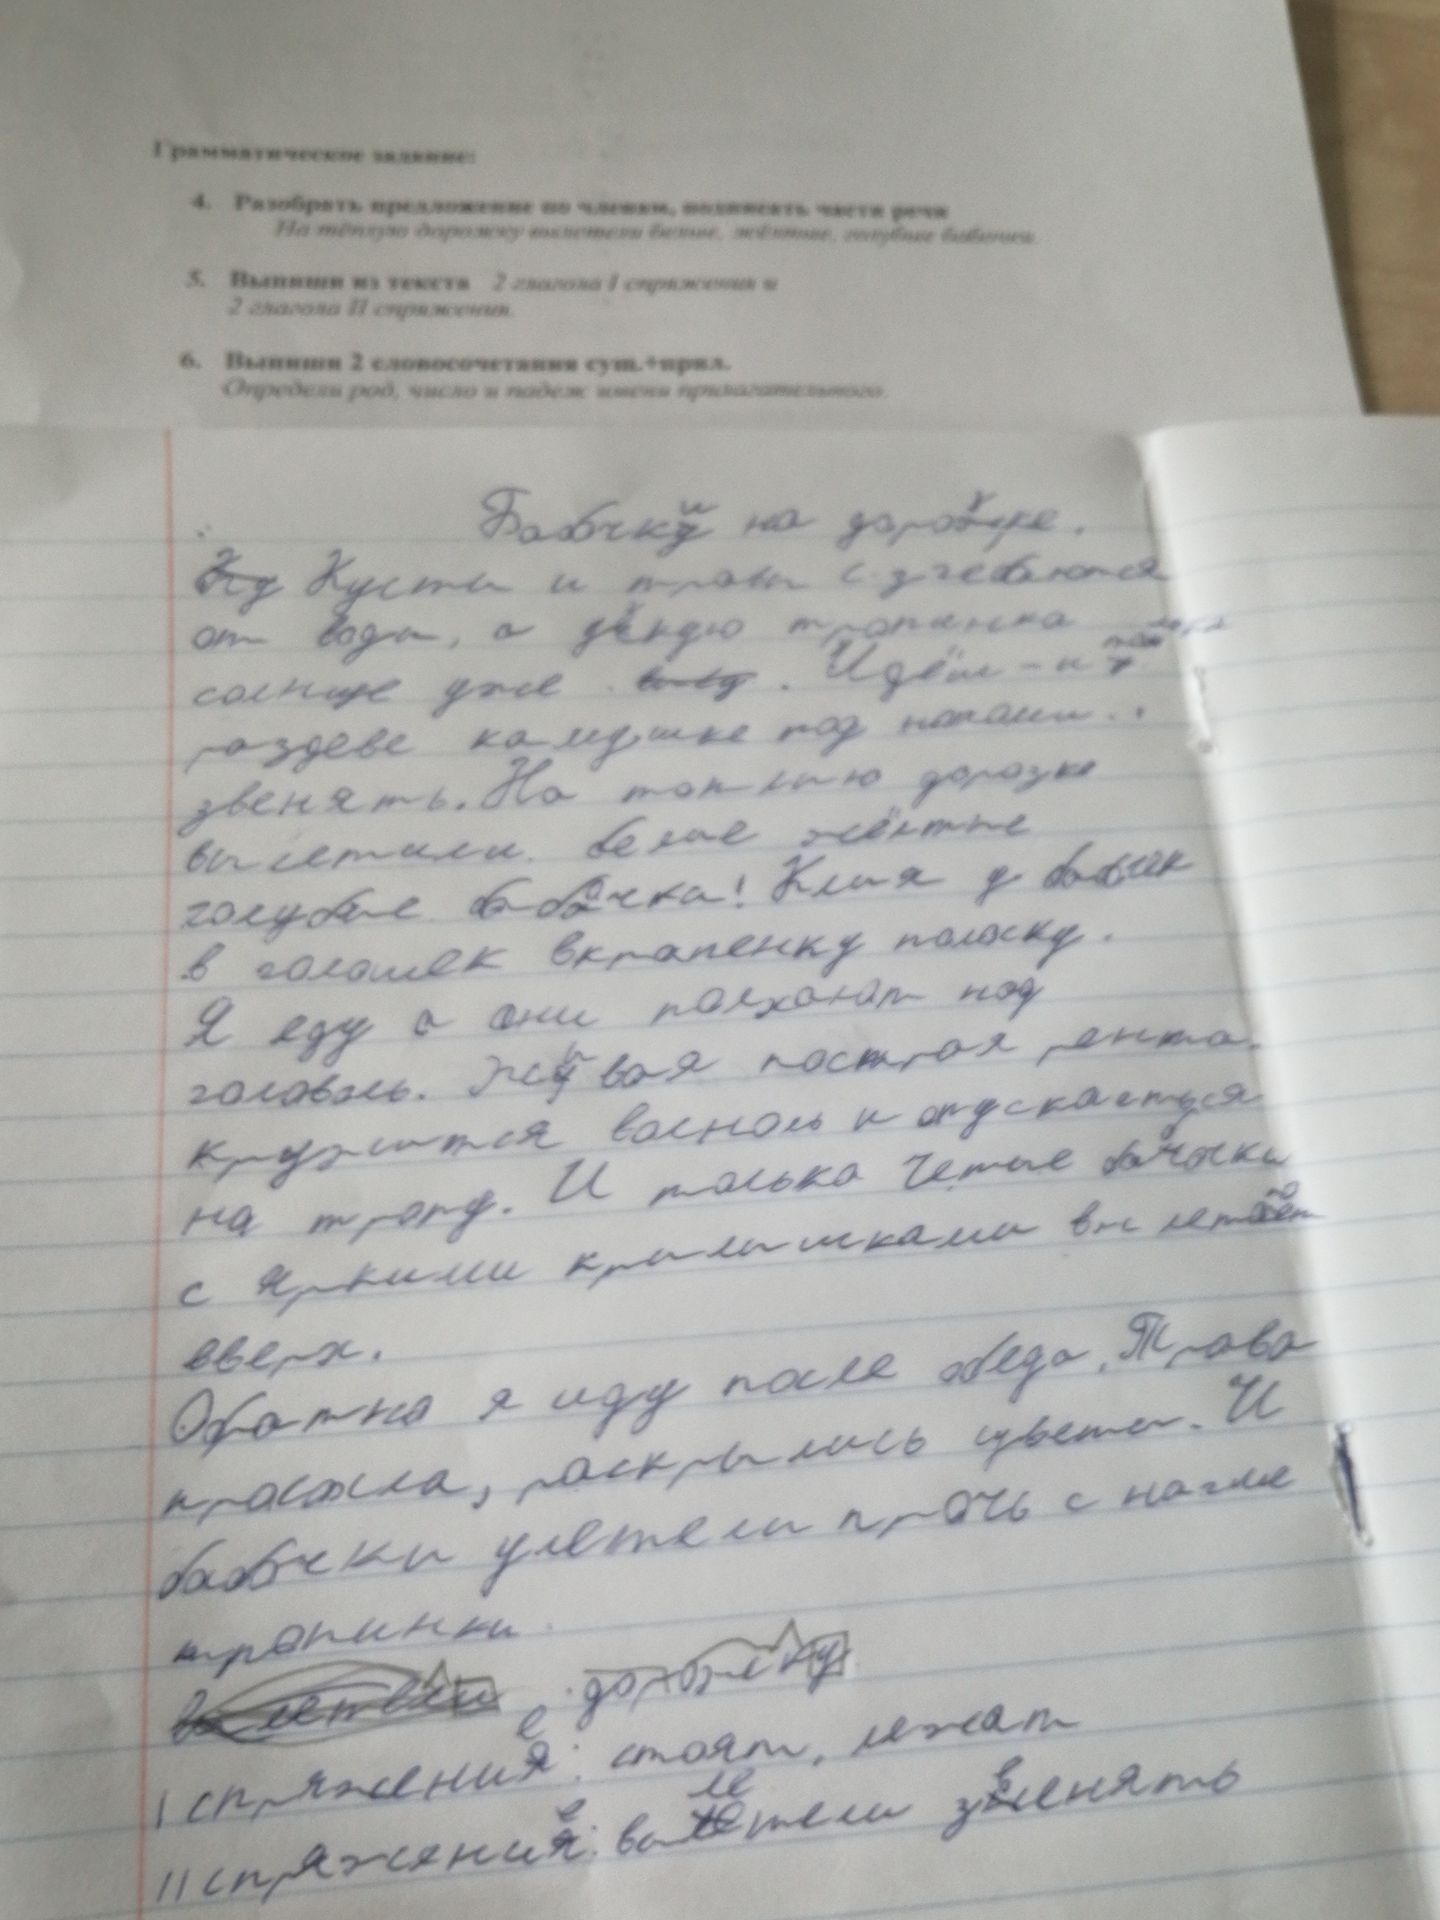 Грамматическое задание:
4. Разобрать предложение по членам, подписать части речи
На тёплую дорожку вылетели белые, жёлтые, голубые бабочки.
5. Выпиши из текста 2 глагола I спряжения и
2 глагола II спряжения.
6. Выпиши 2 словосочетания сущ.+прил.
Определи род, число и падеж имени прилагательного.
Бабчки на дорожке.
Кусты и травы
от воды, а тропинка
солнце уже . Идёш - и
раздеве камушке под ногами..
звенять. На дорожке
вылетили белые жёлтые
голубые бабочка! у бабчек
в полоску.
Я еду а они порхают над
головоль. Живая пострая лента.
кружится волноль и опускается
на тропу. И только бабочки
с яркими крылышками вы летают
вверх.
Обратна я иду после обеда. Трава
просохла, раскрылись цветы. И
бабочки улетели прочь с нагле
тропинки.
дорожку
I спряжение: стоят, лежат
II спряжение: вылетели звенять